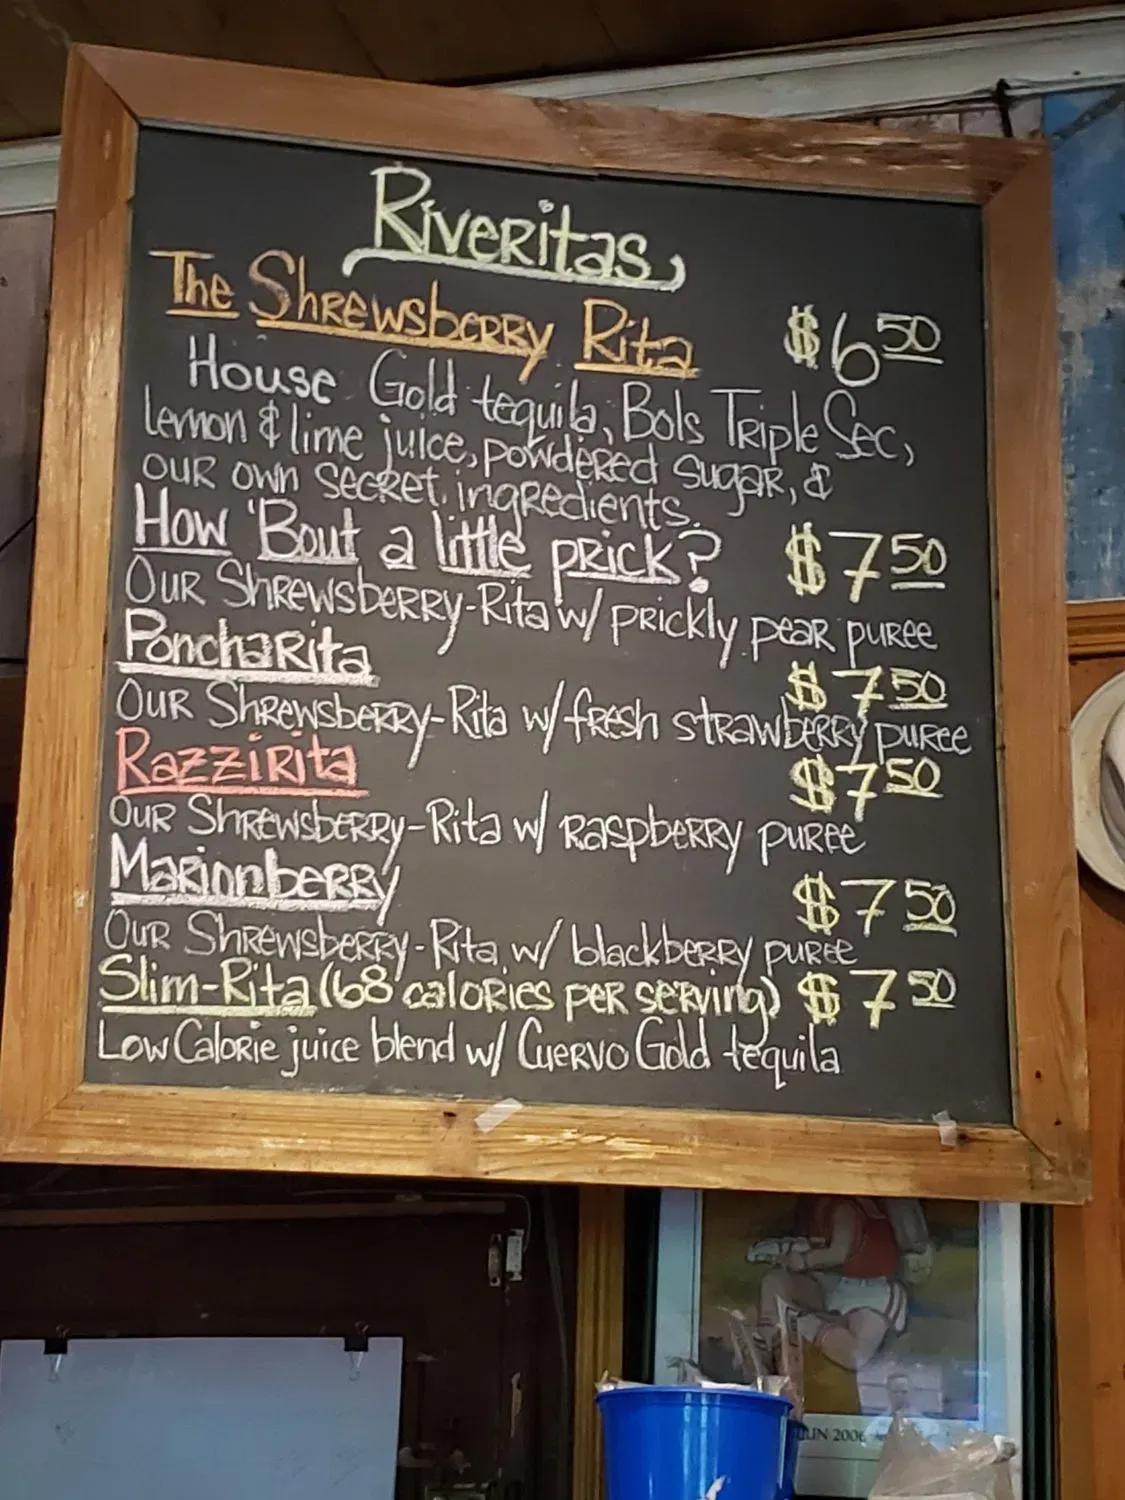 Riveritas
The Shrewsberry Rita $6 50
House Gold tequila, Bols Triple Sec,
lemon & lime juice, powdered sugar, &
our own secret ingredients.
How 'Bout a little prick? $7 50
Our Shrewsberry-Rita w/ prickly pear puree
Poncharita $7 50
Our Shrewsberry-Rita w/ fresh strawberry puree
Razzirita $7 50
Our Shrewsberry-Rita w/ raspberry puree
Marionberry $7 50
Our Shrewsberry-Rita w/ blackberry puree
Slim-Rita (68 calories per serving) $7 50
Low Calorie juice blend w/ Cuervo Gold tequila
2006